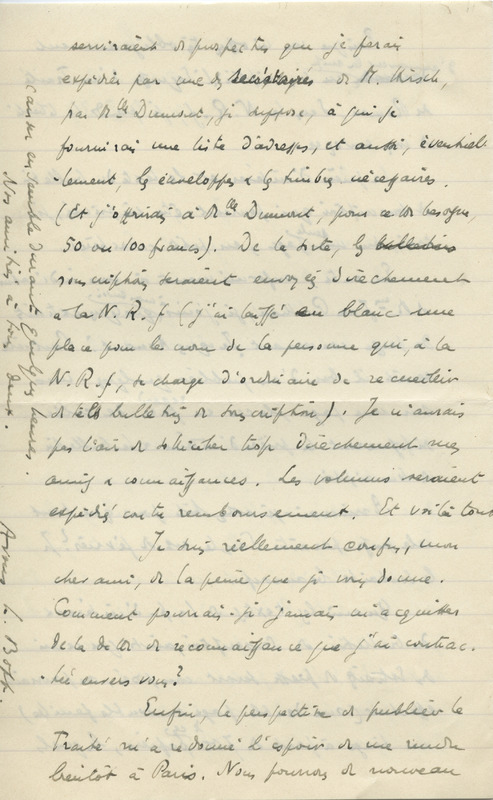 serviraient de prospectus que je ferais
expédier par une des secrétaires de M. Hirsch,
par Mlle Dumont, je suppose, à qui je
fournirais une liste d'adresses, et aussi, éventuel-
-lement, les enveloppes & les timbres nécessaires.
(Et j'offrirais à Mlle Dumont, pour cette besogne,
50 ou 100 francs). De la sorte, les bulletins
souscriptions seraient envoyés directement
à la N. R. f (j'ai laissé en blanc une
place pour le nom de la personne qui, à la
N. R. f, se charge d'ordinaire de recueillir
de tels bulletins de souscription). Je n'aurais
pas l'air de solliciter trop directement mes
amis & connaissances. Les volumes seraient
expédiés contre remboursement. Et voilà tout
Je suis réellement confus, mon
cher ami, de la peine que je vous donne.
Comment pourrais-je jamais m'acquitter
de la dette de reconnaissance que j'ai contrac-
tée envers vous?
Enfin, la perspective de publier le
Traité m'a redonné l'espoir de me rendre
bientôt à Paris. Nous pourrons de nouveau
causer ensemble durant quelques heures.
Nos amitiés à tous deux.